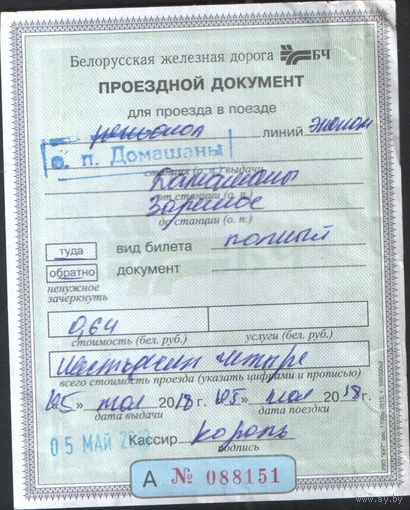 Белорусская железная дорога БЧ
ПРОЕЗДНОЙ ДОКУМЕНТ
для проезда в поезде
линий эконом
о. п. Домашаны
станция (о. п.) выдачи
от станции (о. п.)
Заречное
до станции (о. п.)
туда вид билета полный
обратно документ
ненужное
зачеркнуть
0,64
стоимость (бел. руб.) услуги (бел. руб.)
шестьдесят четыре
всего стоимость проезда (указать цифрами и прописью)
"05" мая 2018 г. "05" мая 2018 г.
дата выдачи дата поездки
05 МАЙ Кассир король
подпись
А № 088151
www.ay.by